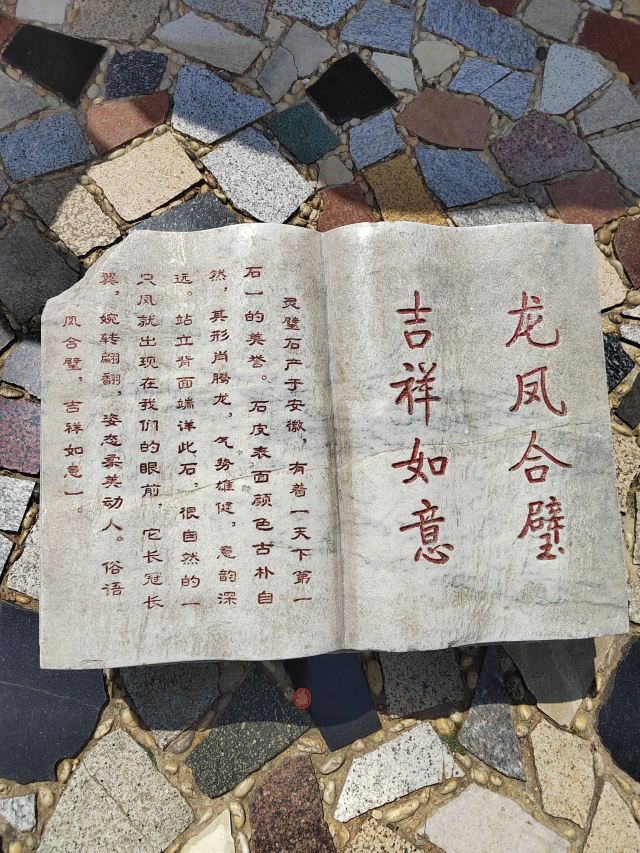 龙凤合璧
吉祥如意
灵璧石产于安徽，有着一天下第一
石一的美誉。石皮表面颜色古朴自
然，其形肖腾龙，气势雄健，意韵深
远。站立背面端详此石，很自然的一
只凤就出现在我们的眼前，它长冠长
翼，婉转翩翻，姿态柔美动人。俗语
凤合璧，吉祥如意一。